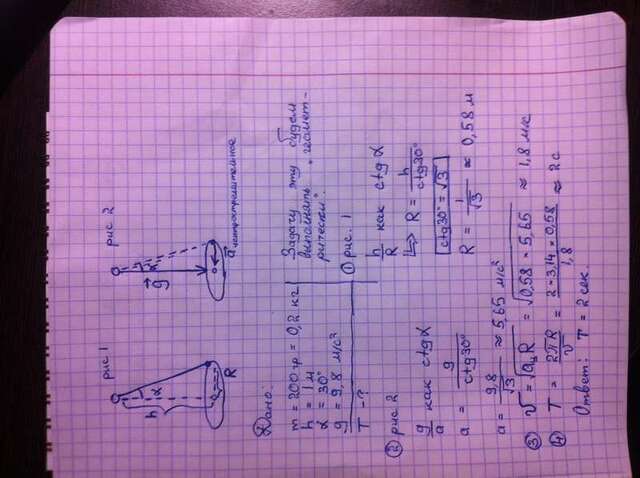 рис 1
рис 2
h
α
R
g
α
a центростремительное
Дано:
m = 200 гр = 0,2 кг
h = 1 м
α = 30°
g = 9,8 м/с²
T - ?
Задачу эту будем
выполнять „геомет-
рически".
① рис. 1
h/R как ctg α
⇒ R = h/ctg30°
ctg30° = √3
R = 1/√3 ≈ 0,58 м
② рис 2
g/a как ctg α
a = g/ctg30°
a = 9,8/√3 ≈ 5,65 м/с²
③ v = √aцR = √0,58 · 5,65 ≈ 1,8 м/с
④ T = 2πR/v = 2 · 3,14 · 0,58/1,8 ≈ 2 с
Ответ: T = 2 сек.